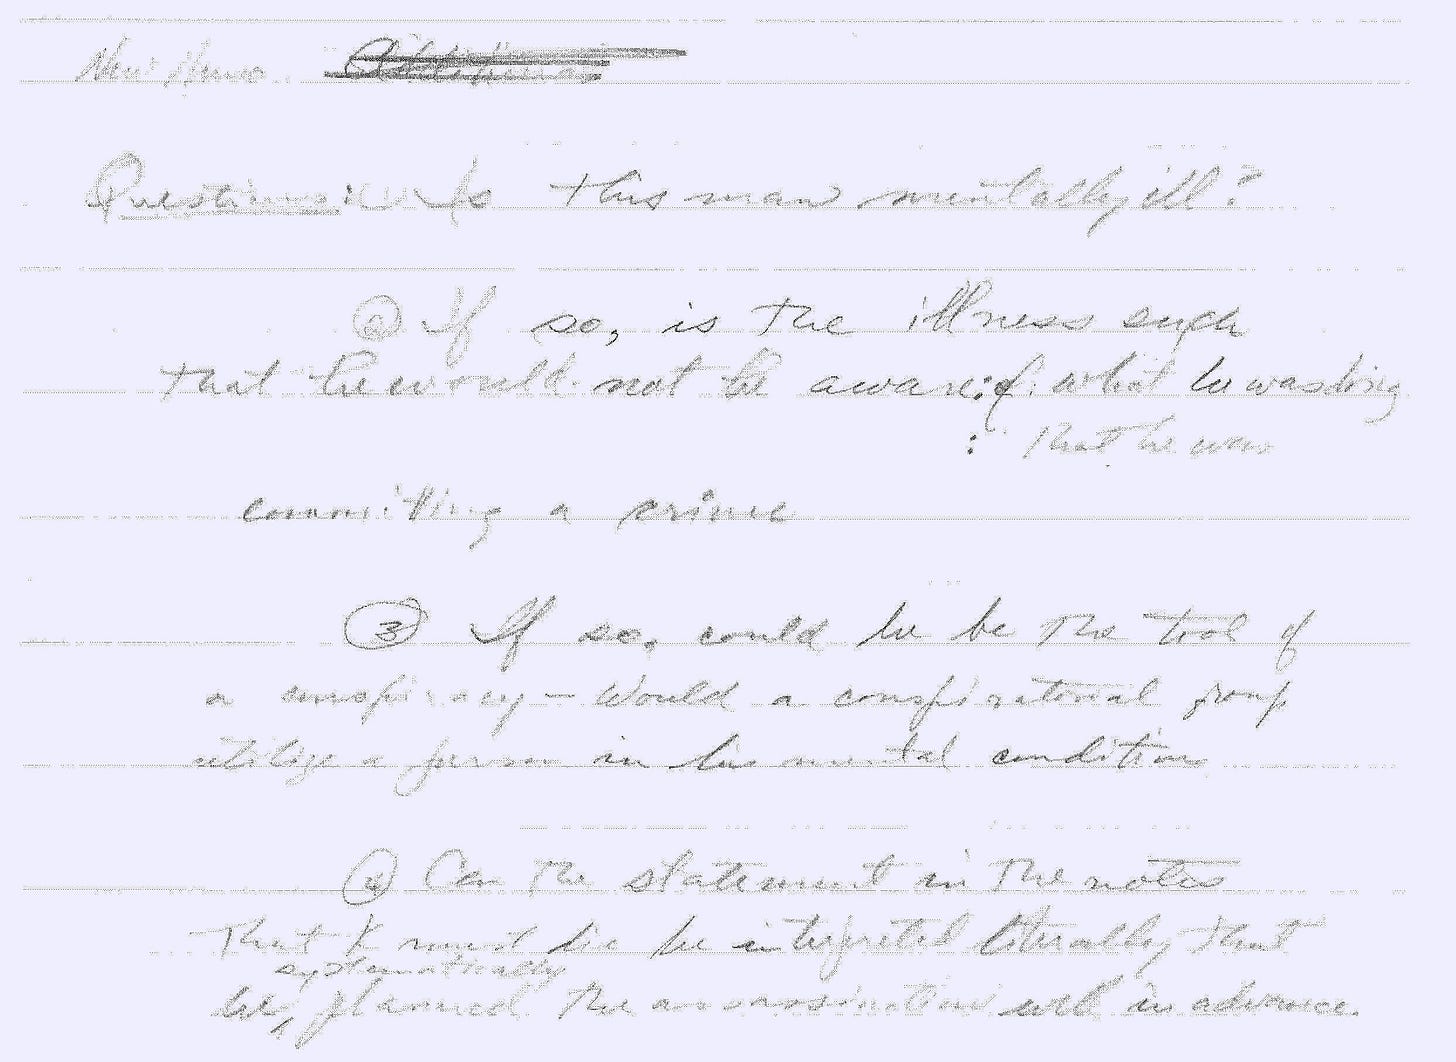 Questions: Is this man mentally ill?
② If so, is the illness such
that he would not be aware: of what he was doing
: that he was
committing a crime
③ If so, could he be the tool of
a conspiracy - Would a conspiratorial group
utilize a person in his mental condition
④ Can the statement in the notes
That K must die be interpreted literally that
systematically
he, planned the assassination well in advance.